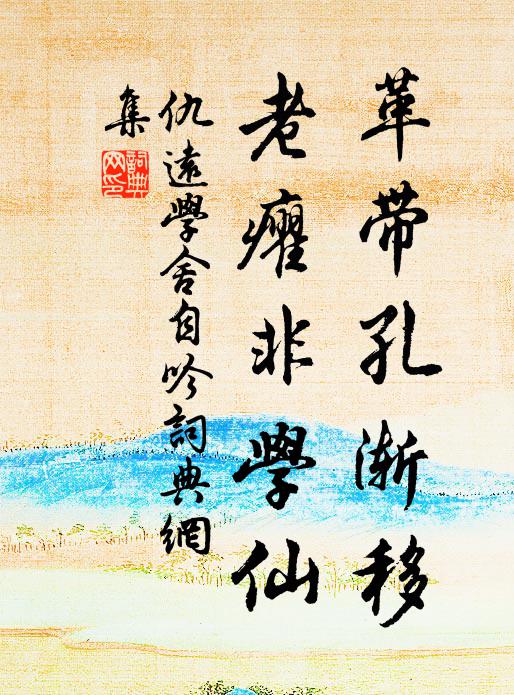 革帶孔漸移
老癯非學仙
仇遠學舍自吟詞典網
集
詞典網印